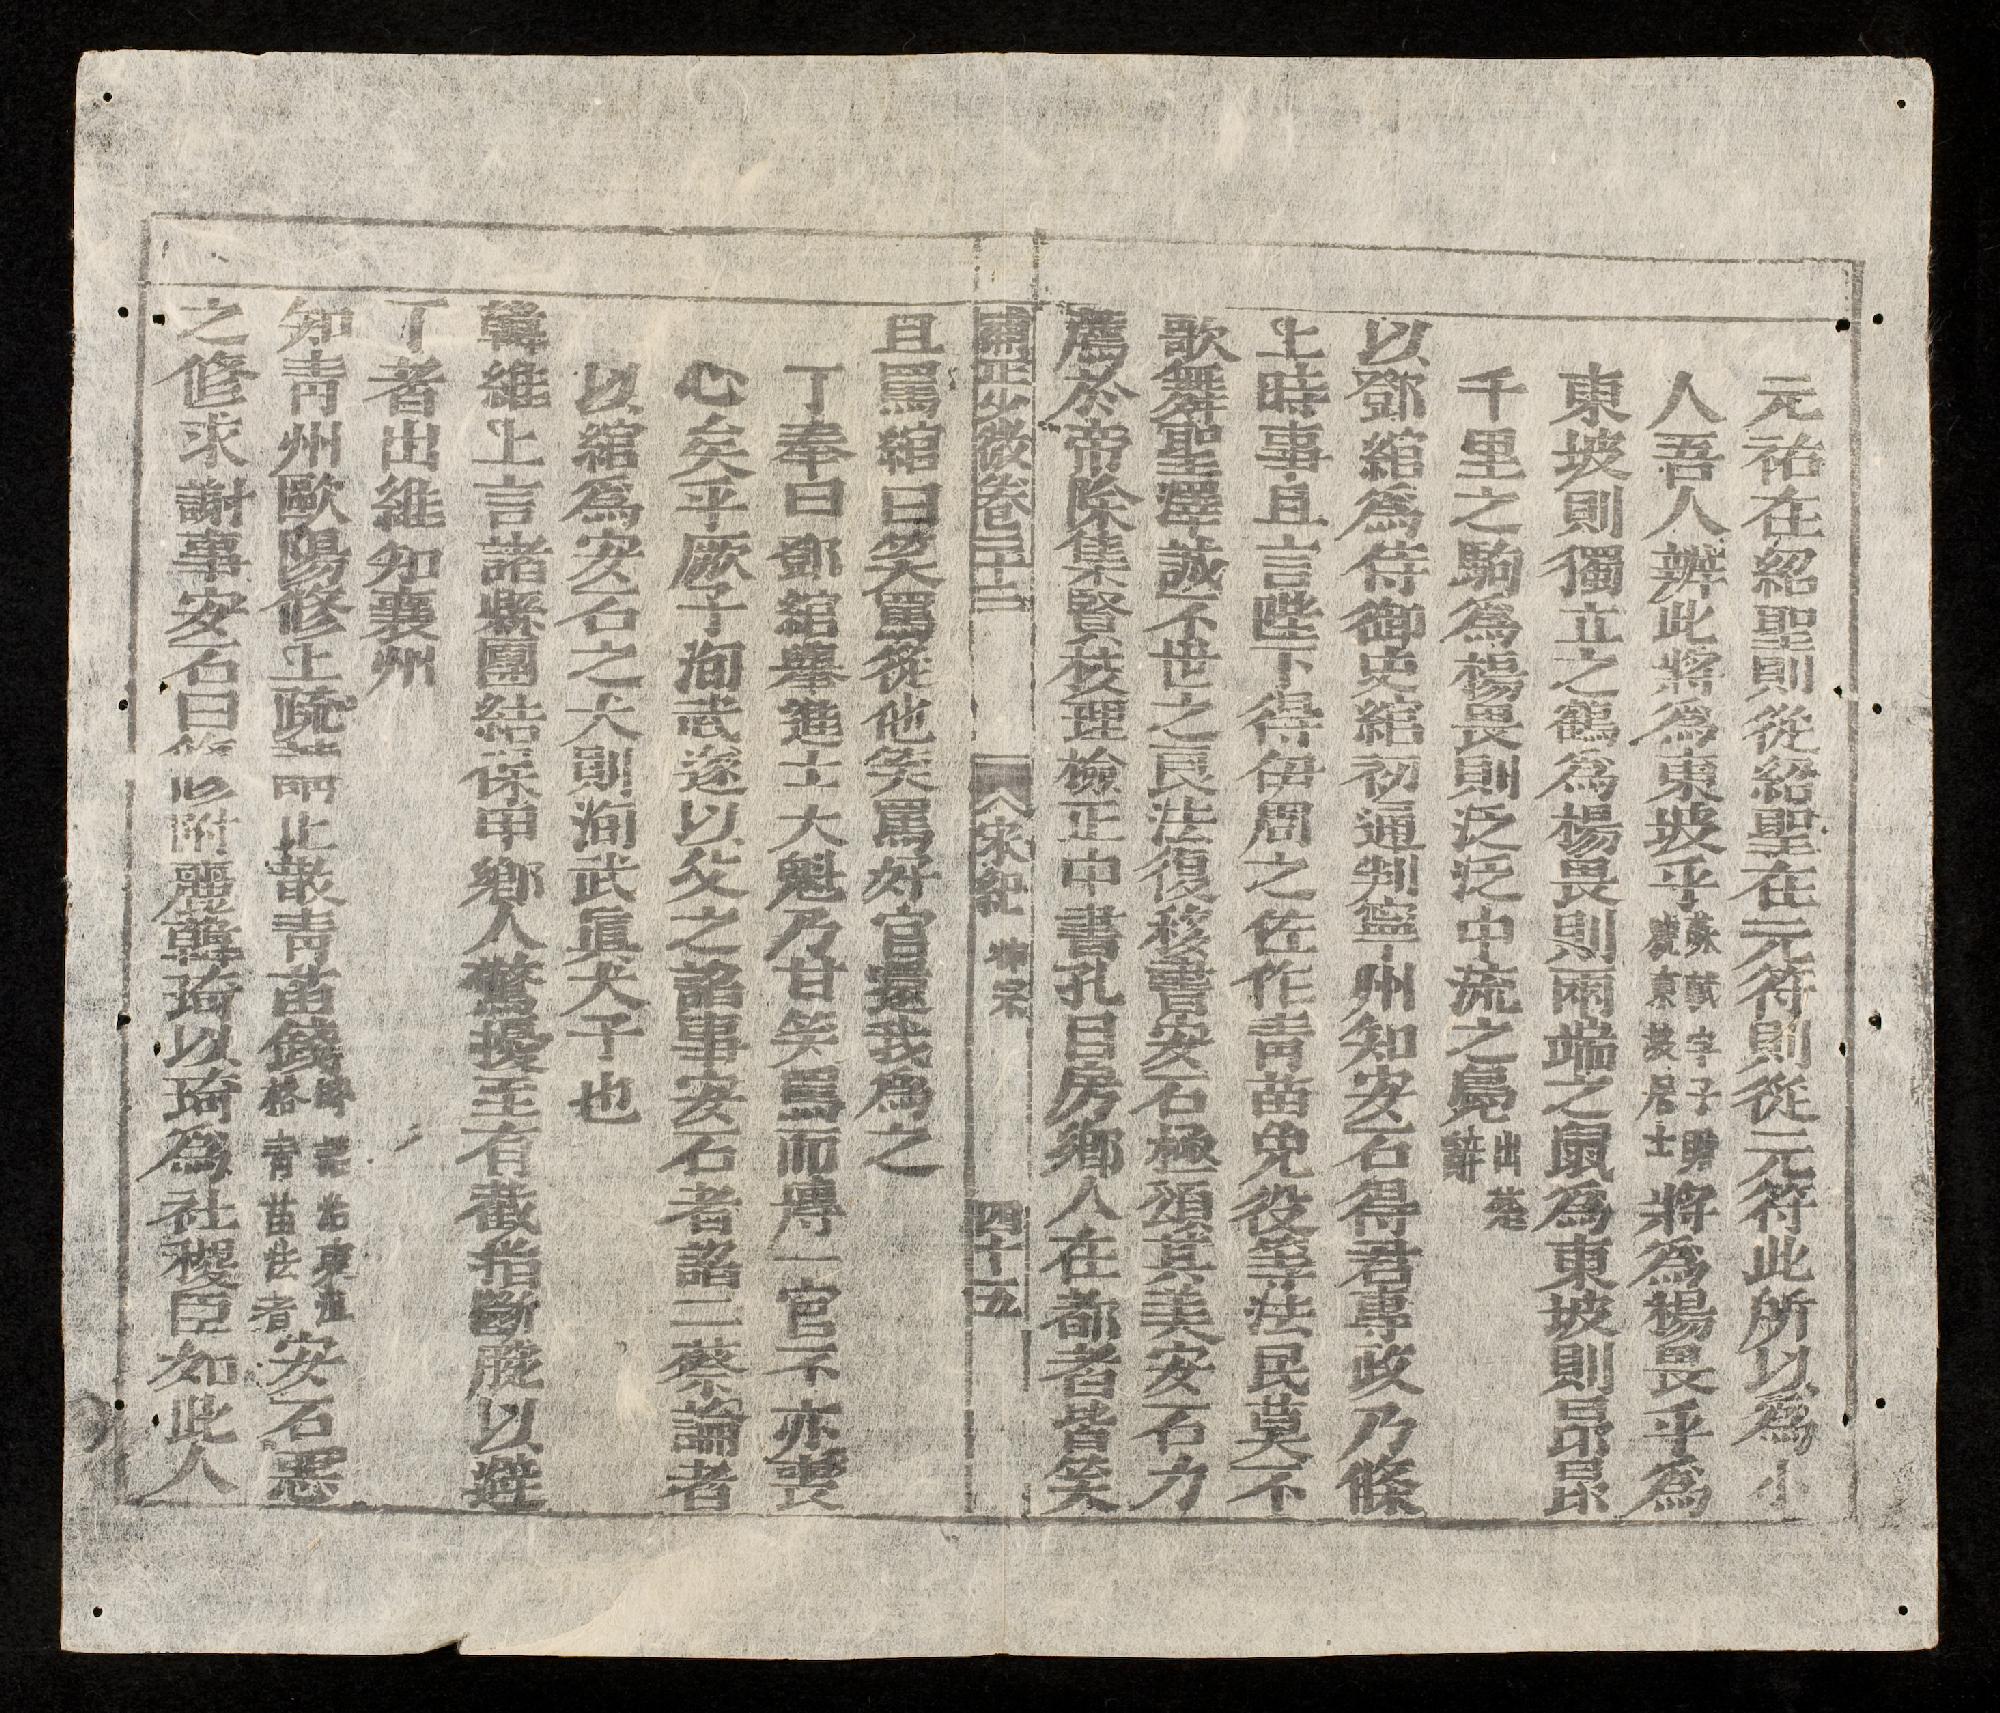 元祐在紹聖則從紹聖在元符則從元符此所以為小
人吾人辨此將為東坡乎蘇軾字子瞻號東坡居士將為楊畏乎為
東坡則獨立之鶴為楊畏則兩端之鼠為東坡則昂昂
千里之駒為楊畏則泛泛中流之鳧出楚辭
以鄧綰為侍御史綰初通判寧州知安石得君專政乃條
上時事且言陛下得伊周之佐作青苗免役等法民莫不
歌舞聖澤誠不世之良法復移書安石極頌其美安石力
薦於帝除集賢校理檢正中書孔目房鄉人在都者皆笑
少微卷二十三 宋紀 神宗 四十五
且罵綰曰笑罵從他笑罵好官還我為之
丁奉曰鄧綰舉進士大魁乃甘笑罵而博一官不亦喪
心矣乎厥子洵武遂以父之諂事安石者諂二蔡論者
以綰為安石之犬則洵武眞犬子也
韓維上言諸縣團結保甲鄉人驚擾至有截指斷腕以避
丁者出維知襄州
知青州歐陽修上疏請止散青苗錢青苗法者安石惡
之修求謝事安石曰修附麗韓琦以琦為社稷臣如此人